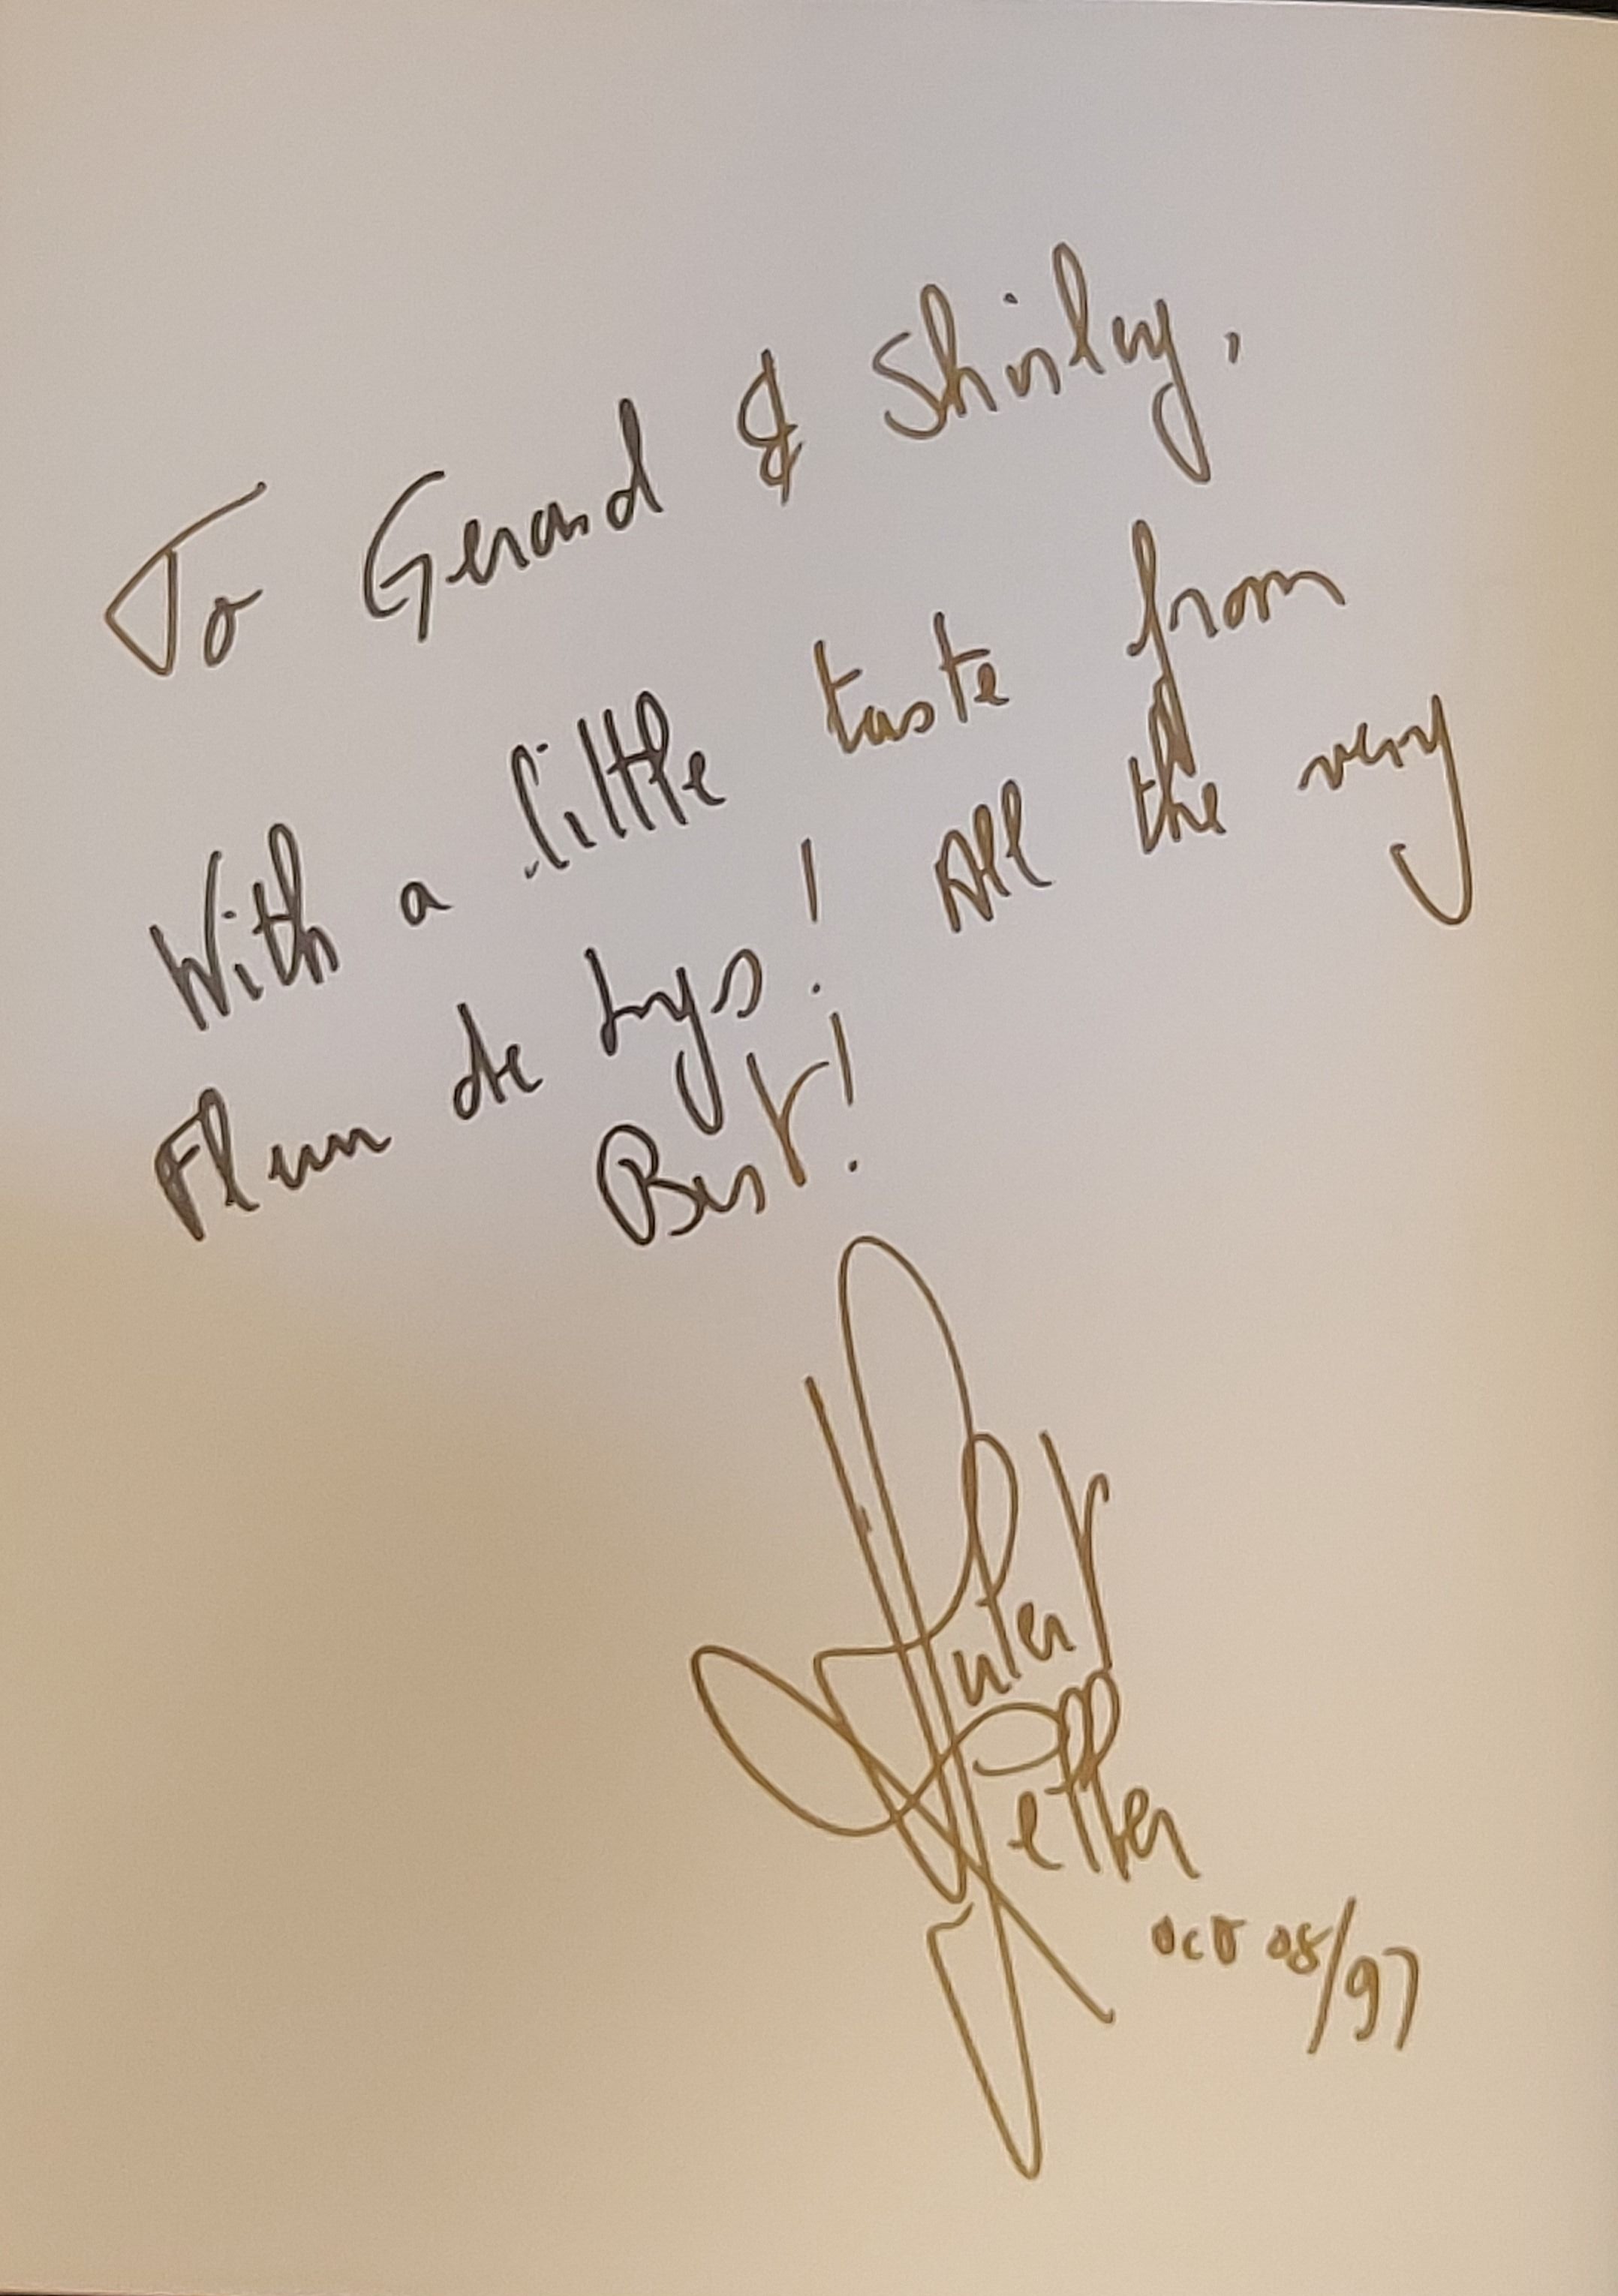 To Gerard & Shirley,
With a little taste from
Fleur de Lys! All the very
Best!
Hubert
Keller
Oct 08/97